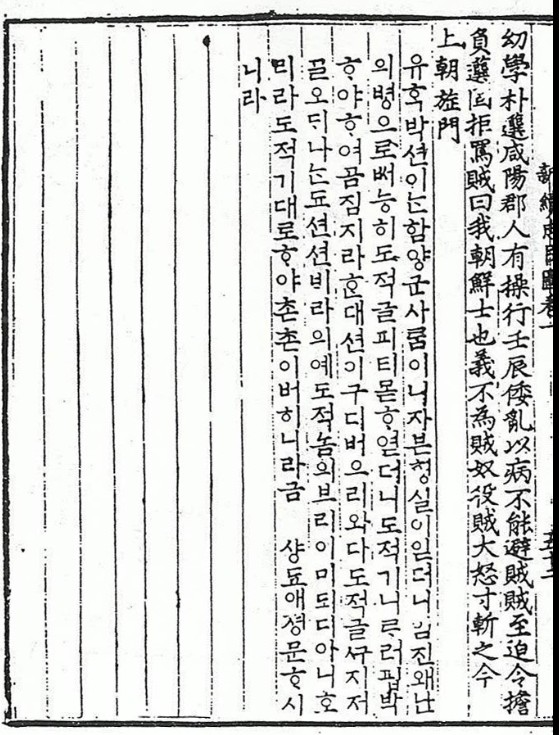 幼學朴選咸陽郡人有操行壬辰倭亂以病不能避賊賊至迫令擔
負選固拒罵賊曰我朝鮮士也義不為賊奴役賊大怒寸斬之今
上朝旌門
유ᄒᆞᆨ박션이ᄂᆞᆫ함양군사ᄅᆞᆷ이니자븐ᄒᆡᆼ실이읻더니임진왜난
의병으로ᄡᅥ능히도적글피티몯ᄒᆞ엳더니도적기니ᄅᆞ러핍박
ᄒᆞ야ᄒᆞ여곰짐지라ᄒᆞᆫ대션이구디버으리와다도적글ᄭᅮ지저
ᄀᆞᆯ오ᄃᆡ나ᄂᆞᆫ됴션션ᄇᆡ라의예도적놈의브리이미되디아니호
리라도적기대로ᄒᆞ야촌촌이버히니라금 샹됴애졍문ᄒᆞ시
니라